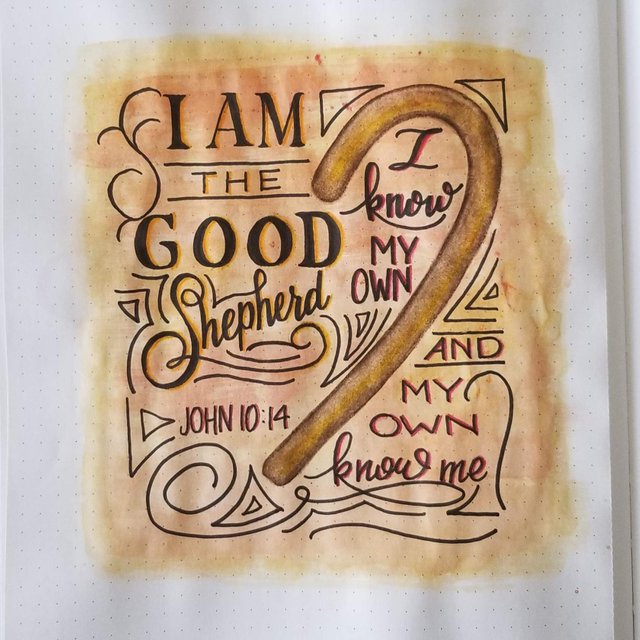 I AM
THE
GOOD
Shepherd
JOHN 10:14
I
know
MY
OWN
AND
MY
OWN
know me